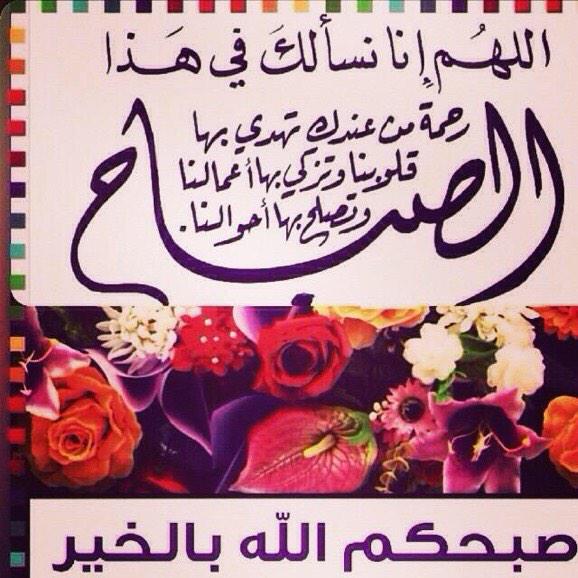 اللهُم إنا نسألكَ في هَذا
الصباح
رحمة من عندك تهدي بها
قلوبنا وتزكي بها أعمالنا
وتصلح بها أحوالنا.
صبحكم الله بالخير